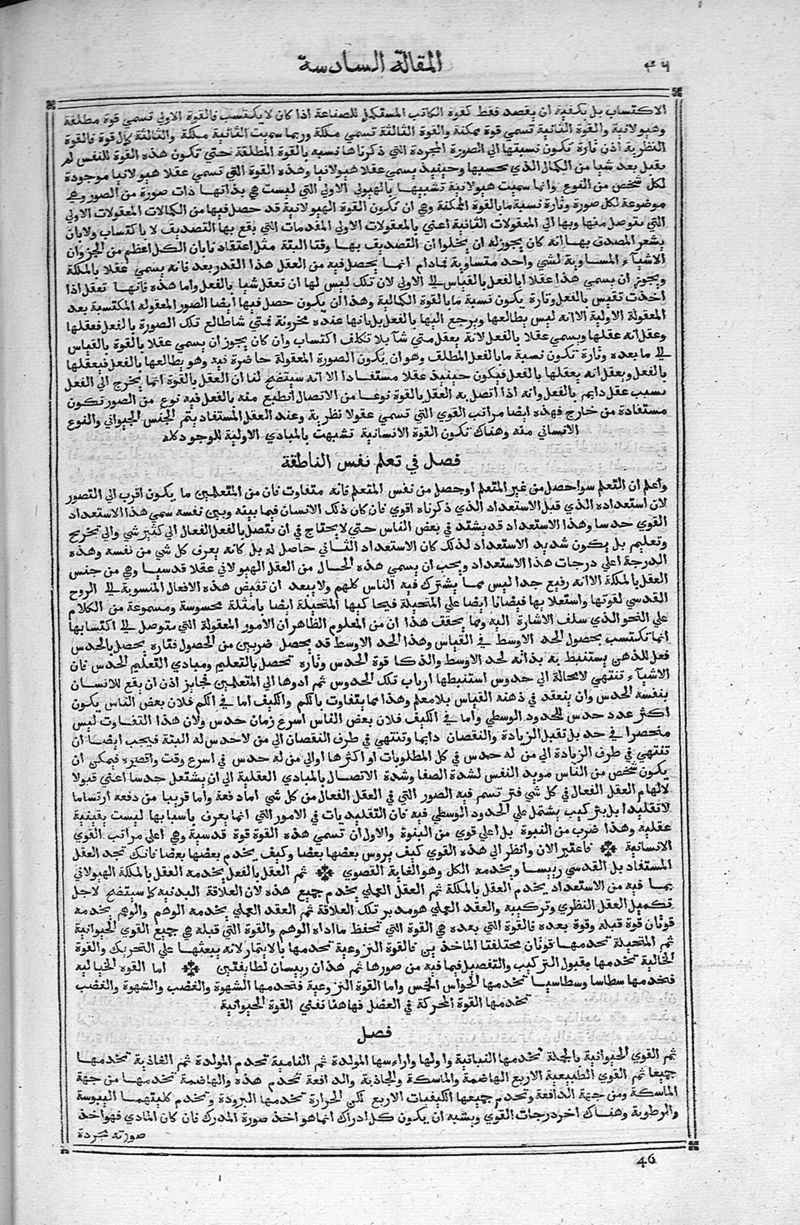 المقالة السادسة
٤٦
الاكتساب بل يكفيه ان يقصد فقط كقوة الكاتب المستكمل للصناعة اذا كان لا يكتسب فالقوة الاولي تسمي قوة مطلقة
وهيولانية والقوة الثانية تسمي قوة ممكنة والقوة الثالثة تسمي ملكة وربما سميت الثانية ملكة والثالثة كمال قوة فالقوة
النظرية اذن تارة تكون نسبتها الي الصورة المجردة التي ذكرناها نسبه بالقوة المطلقة حتي تكون هذه القوة للنفس لم
يقبل بعد شيا من الكمال الذي بحسبها وحينيذ يسمي عقلا هيولانيا وهذه القوة التي تسمي عقلا هيولانيا موجودة
لكل شخص من النوع وانما سميت هيولانية تشبيها بالهيولي الاولي التي ليست هي بذاتها ذات صورة من الصور وهي
موضوعة لكل صورة وتارة نسبة ما بالقوة الممكنة وهي ان تكون القوة الهيولانية قد حصل فيها من الكمالات المعقولات الاولي
التي يتوصل منها وبها الي المعقولات الثانية اعني بالمعقولات الاولي المقدمات التي يقع بها التصديق لا باكتساب ولا بان
يشعر المصدق بها انه كان يجوز له ان يخلوا ان التصديق بها وقتا البتة مثل اعتقادنا بان الكل اعظم من الجزوان
الاشيآء المساوية لشي واحد متساوية فمادام انما يحصل فيه من العقل هذا القدر بعد فانه يسمي عقلا بالملكة
ويجوز ان يسمي هذا عقلا بالفعل بالقياس الي الاولي لان تلك ليس لها ان تعقل شيا بالفعل واما هذه فانها تعقل اذا
اخذت تقيس بالفعل وتارة يكون نسبة ما بالقوة الكمالية وهذا ان يكون حصل فيها أيضا الصور المعقوله المكتسبة بعد
المعقولة الاولية الا انه ليس يطالعها ويرجع اليها بالفعل بل بانها عنده مخزونة فمتي شا طالع تلك الصورة بالفعل فعقلها
وعقل انه عقلها ويسمي عقلا بالفعل لانه يعقل متي شآ بلا تكلف اكتساب وان كان يجوز ان يسمي عقلا بالقوة بالقياس
الي ما بعده وتارة تكون نسبة ما بالفعل المطلف وهو ان يكون الصورة المعقولة حاضرة فيه وهو يطالعها بالفعل فيعقلها
بالفعل ويعقل انه يعقلها بالفعل فيكون حينيذ عقلا مستفادا الا انه سيتضح لنا ان العقل بالقوة انما يخرج الي الفعل
بسبب عقل دايم بالفعل وانه اذا اتصل به العقل بالقوة نوعا من الاتصال انطبع منه بالفعل فيه نوع من الصور تكون
مستفادة من خارج فهذه ايضا مراتب القوي التي تسمي عقولا نظرية وعند العقل المستفاد يتم الجنس الحيواني والنوع
الانساني منه وهناك تكون القوة الانسانية تشبهت بالمبادي الاولية للوجود كله
فصل في تعلم نفس الناطقة
واعلم ان التعلم سواحصل من غير المتعلم اوحصل من نفس المتعلم فانه متفاوت فان من المتعلمين ما يكون أقرب الي التصور
لان استعداده الذي قبل الاستعداد الذي ذكرناه اقوي فان كان ذلك الانسان فيما بينه وبين نفسه سمي هذا الاستعداد
القوي حدسا وهذا الاستعداد قد يشتد في بعض الناس حتي لا يحتاج في ان يتصل بالفعل الفعال الي كثير شي والي تخريج
وتعليم بل يكون شديد الاستعداد لذلك كان الاستعداد الثاني حاصل له بل كانه يعرف كل شي من نفسه وهذه
الدرجة اعلي درجات هذا الاستعداد ويجب ان يسمي هذه الحال من العقل الهيولاني عقلا قدسيا وهي من جنس
العقل بالملكة الا انه رفيع جدا ليس مما يشترك فيه الناس كلهم ولا يبعد ان تفيض هذه الافعال المنسوبة الي الروح
القدسي لقوتها واستعلا بها فيضانا ايضا علي المتخيلة فيحا كيها المتخيلة ايضا بامثلة محسوسة ومسموعة من الكلام
علي النحو الذي سلف الاشارة اليه ومما يحقف هذا ان من المعلوم الظاهر ان الامور المعقولة التي متوصل الي اكتسابها
انما تكتسب بحصول الحد الاوسط في القياس وهذا الحد الاوسط قد يحصل ضربين من الحصول فتارة يحصل بالحدس
فعل للذهن يستنبط به بذاته لحد الاوسط والذكا قوة الحدس وتارة تحصل بالتعليم ومبادي التعليم الحدس فان
الاشيآء تنتهي لامحالة الي حدوس استنبطها ارباب تلك الحدوس ثم ادوها الي المتعلمين فجايز اذن ان يقع للانسان
بنفسه الحدس وان ينعقد في ذهنه القياس بلا معلم وهذا مما يتفاوت بالكم والكيف اما في الكم فلان بعض الناس يكون
اكثر عدد حدس للحدود الوسطي واما في الكيف فلان بعض الناس اسرع زمان حدس ولان هذا التفاوت ليس
منحصرا في حد بل تقبل الزيادة والنقصان دايما وتنتهي في طرف النقصان الي من لا حدس له البتة فيجب ايضا ان
تنتهي في طرف الزيادة الي من له حدس في كل المطلوبات او اكثرها اوالي من له حدس في اسرع وقت واقصره فيمكن ان
يكون شخص من الناس مويد النفس لشدة الصفا وشدة الاتصال بالمبادي العقلية الي ان يشتعل حدسا اعني قبولا
لالهام العقل الفعال في كل شي فترتسم فيه الصور التي في العقل الفعال من كل شي امادفعة واما قريبا من دفعه ارتساما
لا تقليدا بل بتركيب يشتمل علي الحدود الوسطي فيه فان التقليديات في الامور التي انما يعرف باسبابها ليست بقينية
عقلية وهذا ضرب من النبوة بل اعلي قوي من النبوة والاول ان تسمي هذه القوة قوة قدسية وهي اعلي مراتب القوي
الانسانية فاعتبر الان وانظر الي هذه القوي كيف يروس بعضها بعضا وكيف يخدم بعضها بعضا فانك تجد العقل
المستفاد بل القدسي رييسا ويخدمه الكل وهو الغاية القصوي ثم العقل بالفعل يخدمه العقل بالملكة الهيولاني
بما فيه من الاستعداد يخدم العقل بالملكة ثم العقل العملي يخدم جميع هذه لان العلاقة البدنية كما سيتضح لاجل
تكميل العقل النظري وتزكيته والعقد العملي هومدبر تلك العلاقة ثم العقد العملي يخدمه الوهم والوهم يخدمه
قوتان قوة قبله وقوة بعده فالقوة التي بعده هي القوة التي تحفظ مااداه الوهم والقوة التي قبله هي جميع القوي الحيوانية
ثم المتخيلة تخدمها قوتان مختلفتا الماخذ ين فالقوة النزوعية تخدمها بالايتمار لانه يبعثها علي التحريك والقوة
الخالية تخدمها بقبول التركيب والتفصيل فيما فيه من صورها ثم هذان رييسان لطايفتين اما القوة الخيالية
فتخدمها سطاسا وسطاسيا تخدمها الحواس الخمس واما القوة النزوعية فتخدمها الشهوة والغضب والشهوة والغضب
تخدمها القوة المحركة في العضل فهاهنا تفني القوة الحيوانية
فصل
ثم القوي الحيوانية بالجملة تخدمها النباتية واولها واراسها المولدة ثم النامية تخدم المولدة ثم الغاذية تخدمها
جميعا ثم القوي الطبيعية الاربع الهاضمة والماسكة والجاذبة والدافعة تخدم هذه والهاضمة تخدمها من جهة
الماسكة ومن جهة الدافعة وتخدم جميعها الكيفيات الاربع لكن الحرارة تخدمها البرودة وتخدم كليتهما اليبوسة
والرطوبة وهناك اخر درجات القوي ويشبه ان يكون كل ادراك انما هو اخذ صورة المدرك فان كان المادي فهو اخذ
صورته مجردة
46